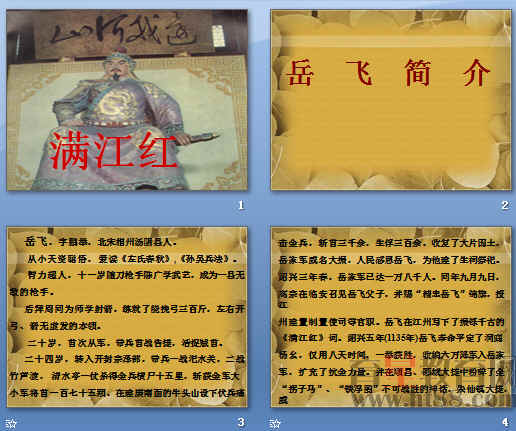 還我河山
满江红
1
岳 飞 简 介
2
岳飞，字鹏举，北宋相州汤阴县人。
从小天资聪倍，爱读《左氏春秋》,《孙吴兵法》。
智力超人，十一岁随刀枪手陈广学武艺，成为一县无
敌的枪手。
后拜周同为师学射箭，练就了能挽弓三百斤，左右开
弓、箭无虚发的本领。
二十岁，首次从军，带兵首战告捷，活捉贼首。
二十四岁，转入开封宗泽部，带兵一战汜水关，二战
竹芦渡， 清水亭一仗杀得金兵横尸十五里，斩获金军大
小军将首一百七十五颗，在建康南面的牛头山设下伏兵痛
3
击金兵，斩首三千余，生俘三百余，收复了大片国土。
岳家军威名大振，人民感恩岳飞，为他建了生祠祭祀。
绍兴三年春，岳家军已达一万八千人。同年九月九日，
高宗在临安召见岳飞父子，并赐“精忠岳飞”锦旗，授
江
州造置制置使司等官职。岳飞在江州写下了振铄千古的
《满江红》词。绍兴五年(1135年)岳飞奉命平定了洞庭
杨幺，仅用八天时间，一举荻胜，收编六万降军入岳家
军，扩充了抗金力量。并在顺昌、郾城大捷中粉碎了金
“拐子马”、“铁浮图”不可战胜的神话，朱仙镇大捷，
威
4